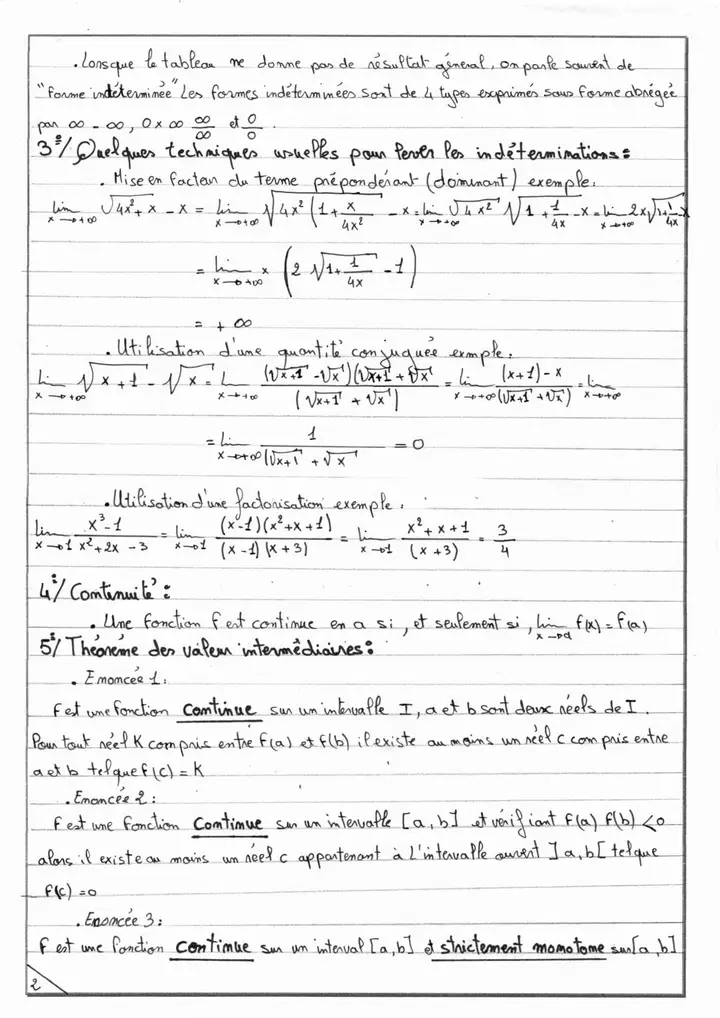 . Lorsque le tableau ne donne pas de résultat général, on parle souvent de
"Forme indéterminée" Les formes indéterminées sont de 4 types exprimés sous forme abrégée
par ∞ - ∞, 0 × ∞ ∞/∞ et 0/0.
3°/ Quelques techniques usuelles pour lever les indéterminations :
. Mise en facteur du terme prépondérant (dominant) exemple.
lim x→+∞ √4x²+x - x = lim x→+∞ √4x²(1+x/4x²) - x = lim x→+∞ √4x² √1+1/4x - x = lim x→+∞ 2x√1+1/4x - x
= lim x→+∞ x (2√1+1/4x - 1)
= +∞
. Utilisation d'une quantité conjuguée exmple.
lim x→+∞ √x+1 - √x = L x→+∞ (√x+1 - √x)(√x+1 + √x / (√x+1 + √x) = lim x→+∞ (x+1) - x / (√x+1 + √x) = lim x→+∞
= lim x→+∞ 1 / (√x+1 + √x = 0
. Utilisation d'une factorisation exemple.
lim x→1 x³-1 / x²+2x-3 = lim x→1 (x-1)(x²+x+1) / (x-1)(x+3) = lim x→1 x²+x+1 / (x+3) = 3/4
4°/ Contenuité :
. Une fonction f est continue en a si, et seulement si, lim x→a f(x) = f(a)
5°/ Théorème des valeur intermédiaires :
. Enoncée 1.
f est une fonction Continue sur un intervalle I, a et b sont deux réels de I.
Pour tout réel K compris entre f(a) et f(b) il existe au moins un réel c compris entre
a et b tel que f(c) = K
. Enoncée 2 :
f est une fonction Continue sur un intervalle [a, b] et vérifiant f(a) f(b) < 0
alors il existe au moins un réel c appartenant à L'intervalle ouvert ]a, b[ tel que
f(c) = 0
. Enoncée 3 :
f est une fonction Continue sur un interval [a, b] et strictement monotome sur [a, b]
2